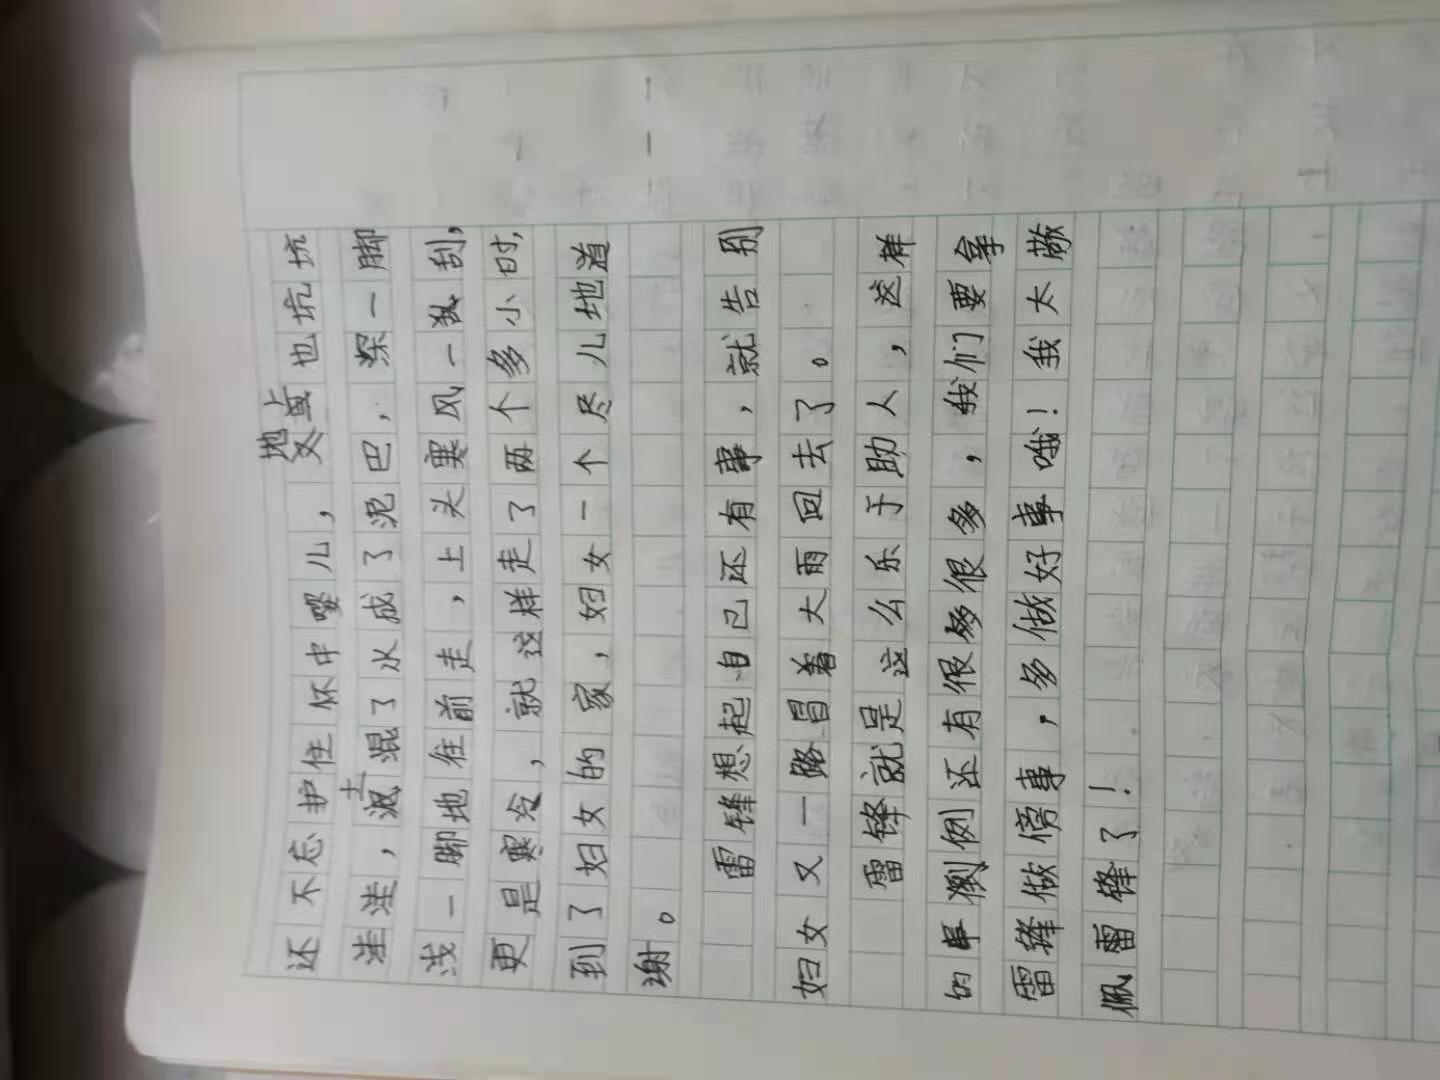 还不忘护住怀中婴儿,地上也坑坑
洼洼,泥土混了水成了泥巴,深一脚
浅一脚地往前走,上头寒风一刮,
更是寒冷,就这样走了两个多小时,
到了妇女的家,妇女一个尽儿地道
谢。
雷锋想起自己还有事,就告别
妇女又一路冒着大雨回去了。
雷锋就是这么乐于助人,这样
的事例还有很多很多,我们要拿
雷锋做傍事,多做好事哦!我太敝
佩雷锋了!